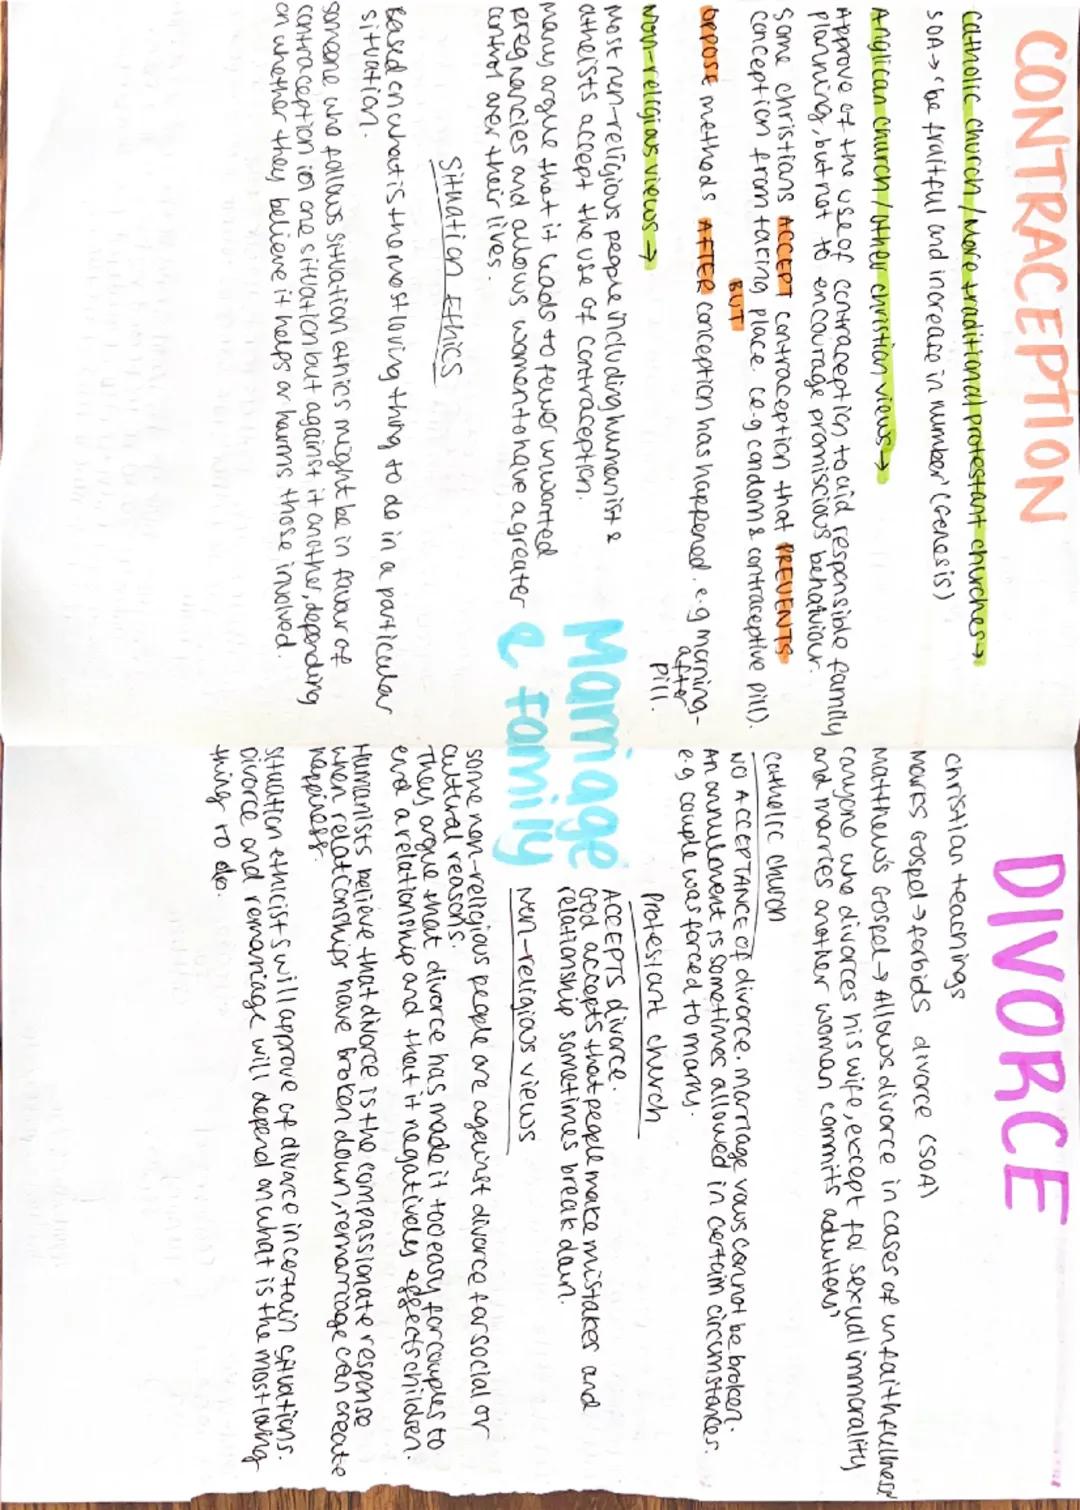 CONTRACEPTION
Catholic church / More traditional protestant churches →
SOA → 'be fruitful and increase in number' (Genesis)
Anglican church / other christian views →
Approve of the use of contraception to aid responsible family
planning, but not to encourage promiscious behaiviour.
Some christians ACCEPT contraception that PREVENTS
conception from taking place. (e.g condoms & contraceptive pill).
BUT
OPPOSE methods AFTER conception has happened. e.g morning-
after
pill.
Non-religious views →
Most non-religious people including humanist &
atheists accept the use of contraception.
Many argue that it leads to fewer unwanted
pregnancies and allows women to have a greater
control over their lives.
Situation Ethics
Based on what is the most loving thing to do in a particular
situation.
Someone who follows situation ethics might be in favour of
contraception ion one situation but against it another, depending
on whether they believe it helps or harms those involved.
Marriage
& family
DIVORCE
Christian teachings
Marks Gospel → forbids divorce (SOA)
Matthew's Gospel → Allows divorce in cases of unfaithfullness
'anyone who divorces his wife, except for sexual immorality
and marries another woman commits adultery'
Catholic church
NO ACCEPTANCE of divorce. marriage vows cannot be broken.
An annulment is sometimes allowed in certain circumstances.
e.g couple was forced to marry.
Protestant church
ACCEPTS divorce.
God accepts that people make mistakes and
relationship sometimes break down.
Non-religious views
Some non-religious people are against divorce for social or
cultural reasons.
They argue that divorce has made it too easy for couples to
end a relationship and that it negatively effects children.
Humanists believe that divorce is the compassionate response
when relationships have broken down, remarriage can create
happiness.
Situation ethicists will approve of divorce in certain situations.
Divorce and remarriage will depend on what is the most loving
thing to do.